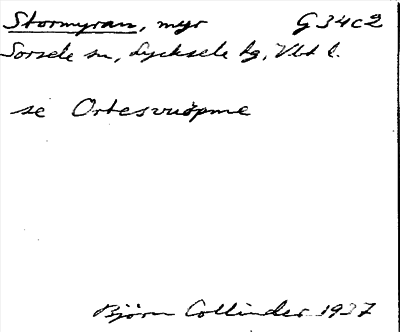 Stormyran, myr G34c2
Sorsele sn, Lycksele tg, Vbt l.
se Ortesvuöpme
Björn Collinder 1937